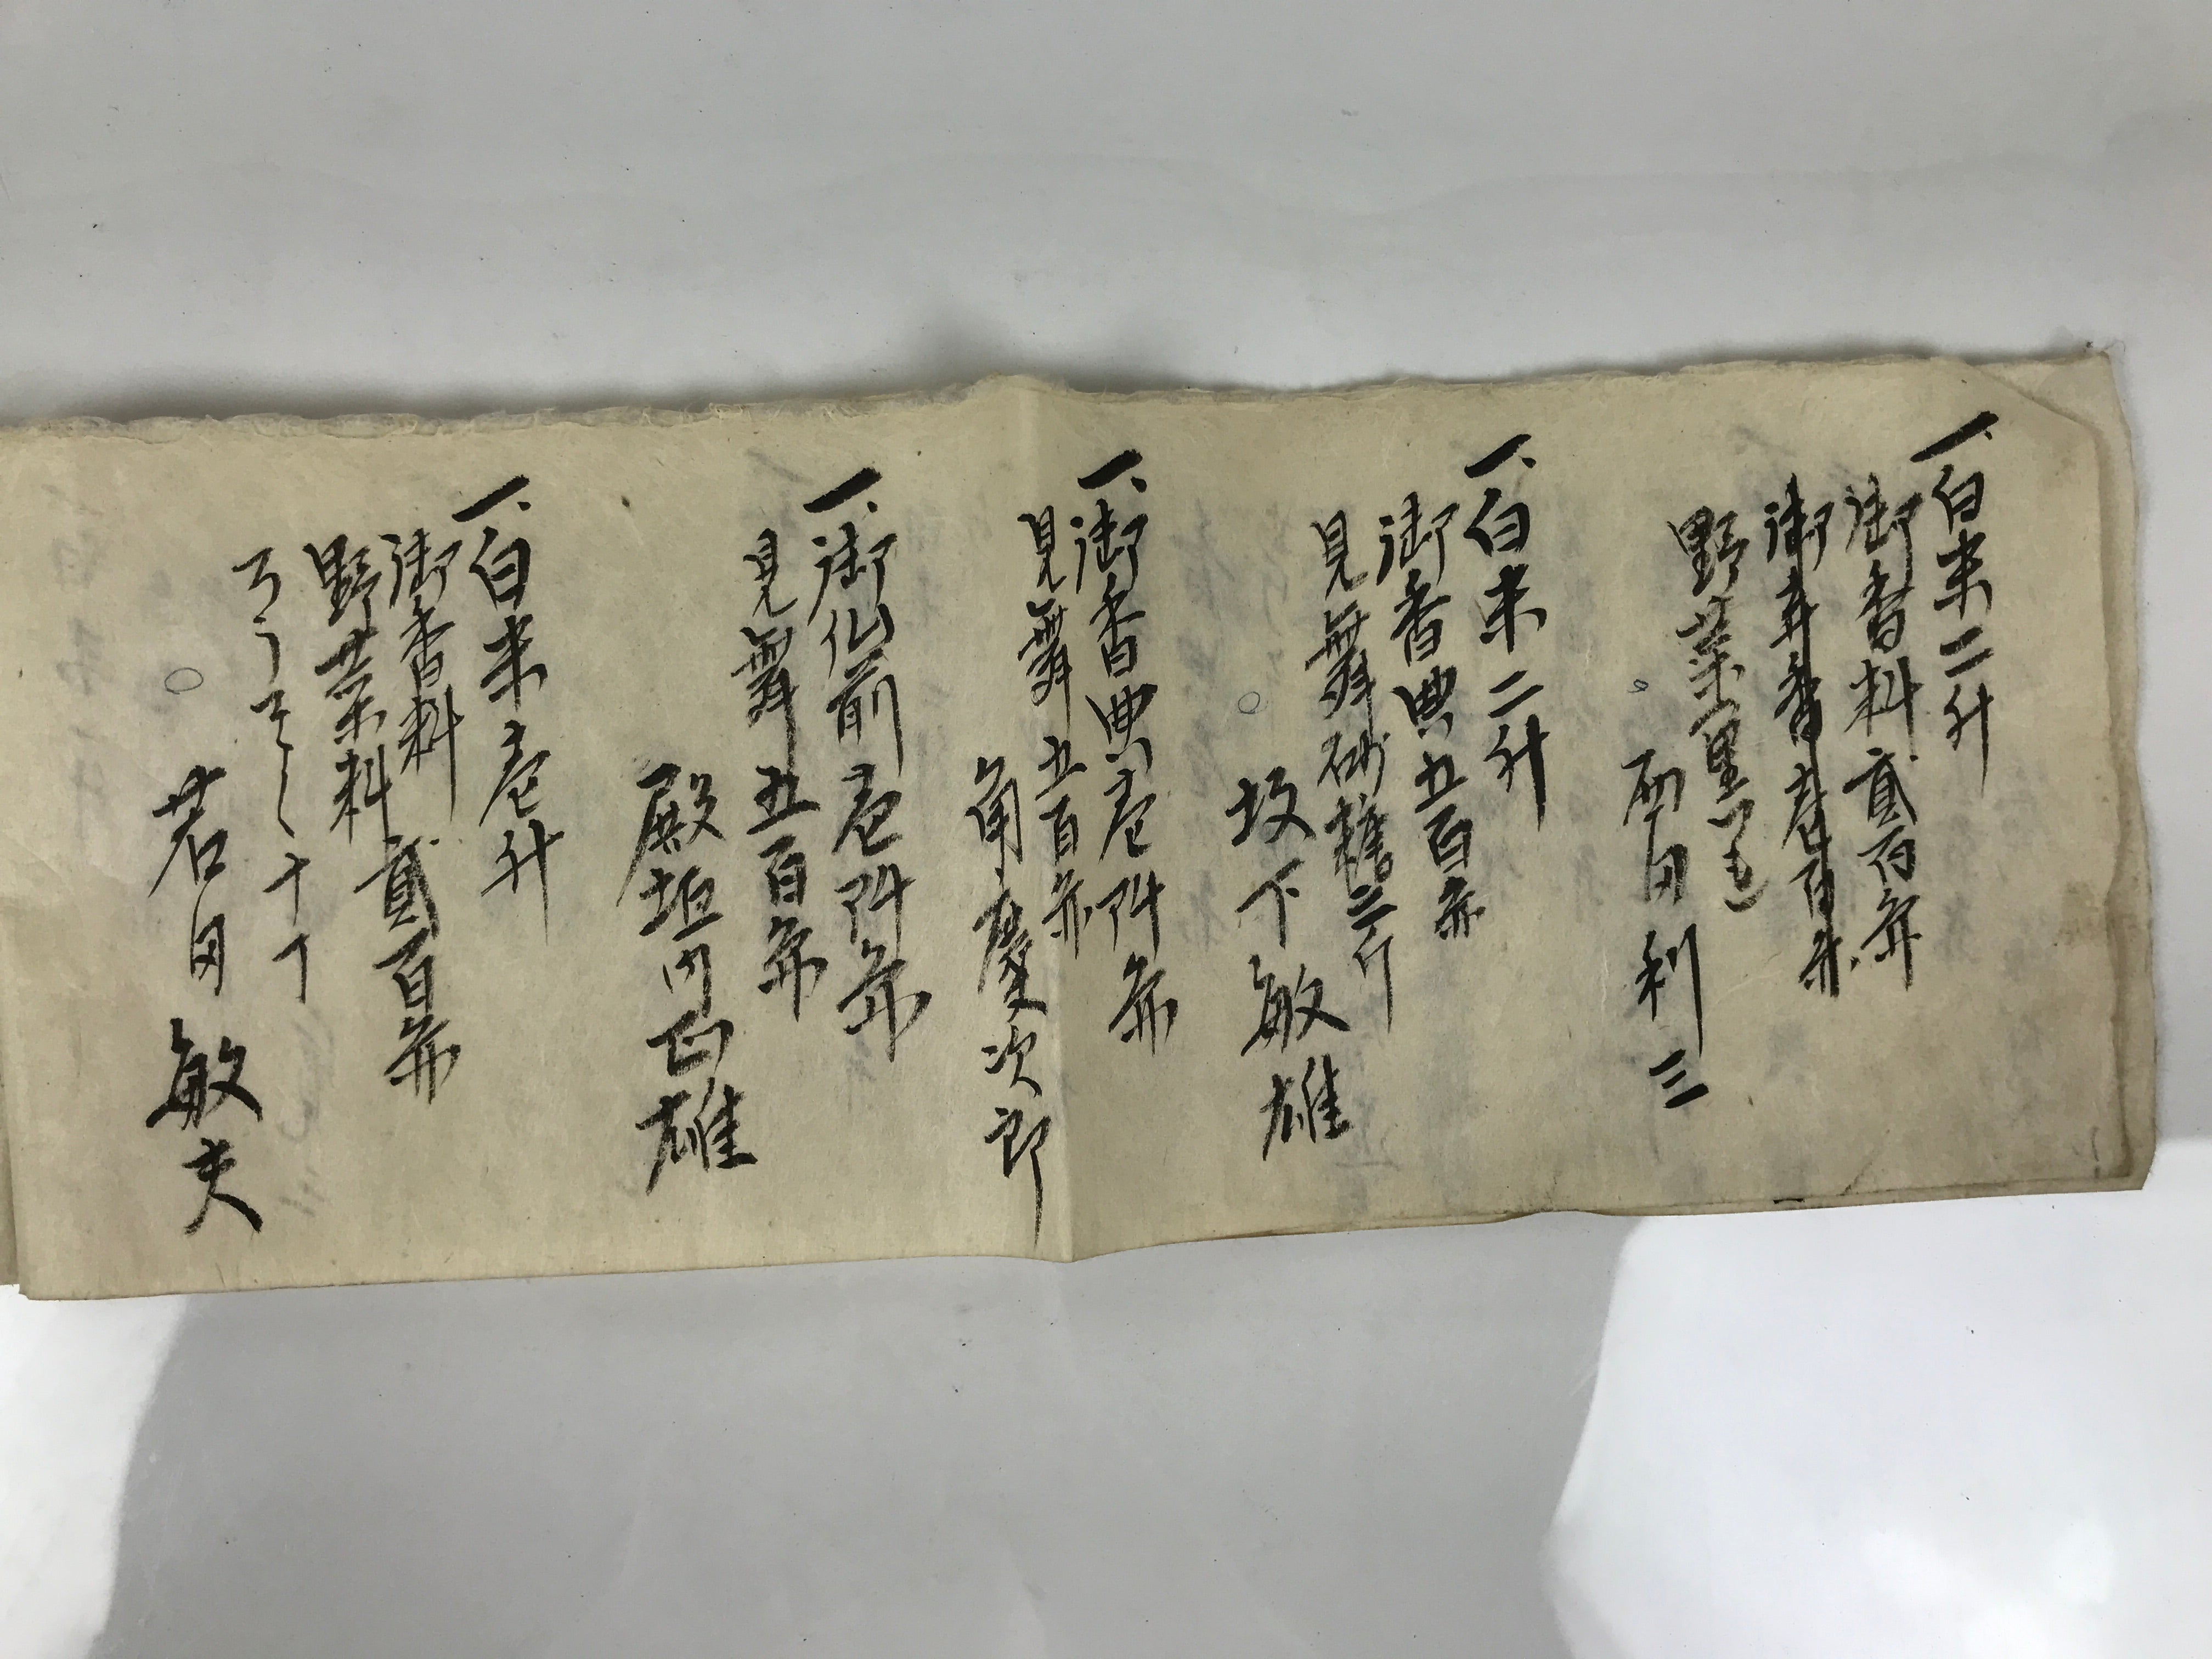 一、白米二升
御香料貳百円
御車香壱百円
野菜一里
西田利三
一、白米二升
御香典五百円
見舞砂糖二斤
坂下敏雄
一、御香典壱阡円
見舞五百円
角慶次郎
一、御仏前壱阡円
見舞五百円
殿垣内正雄
一、白米壱升
御香料
野菜料貳百円
ろうそく十丁
若田敏夫